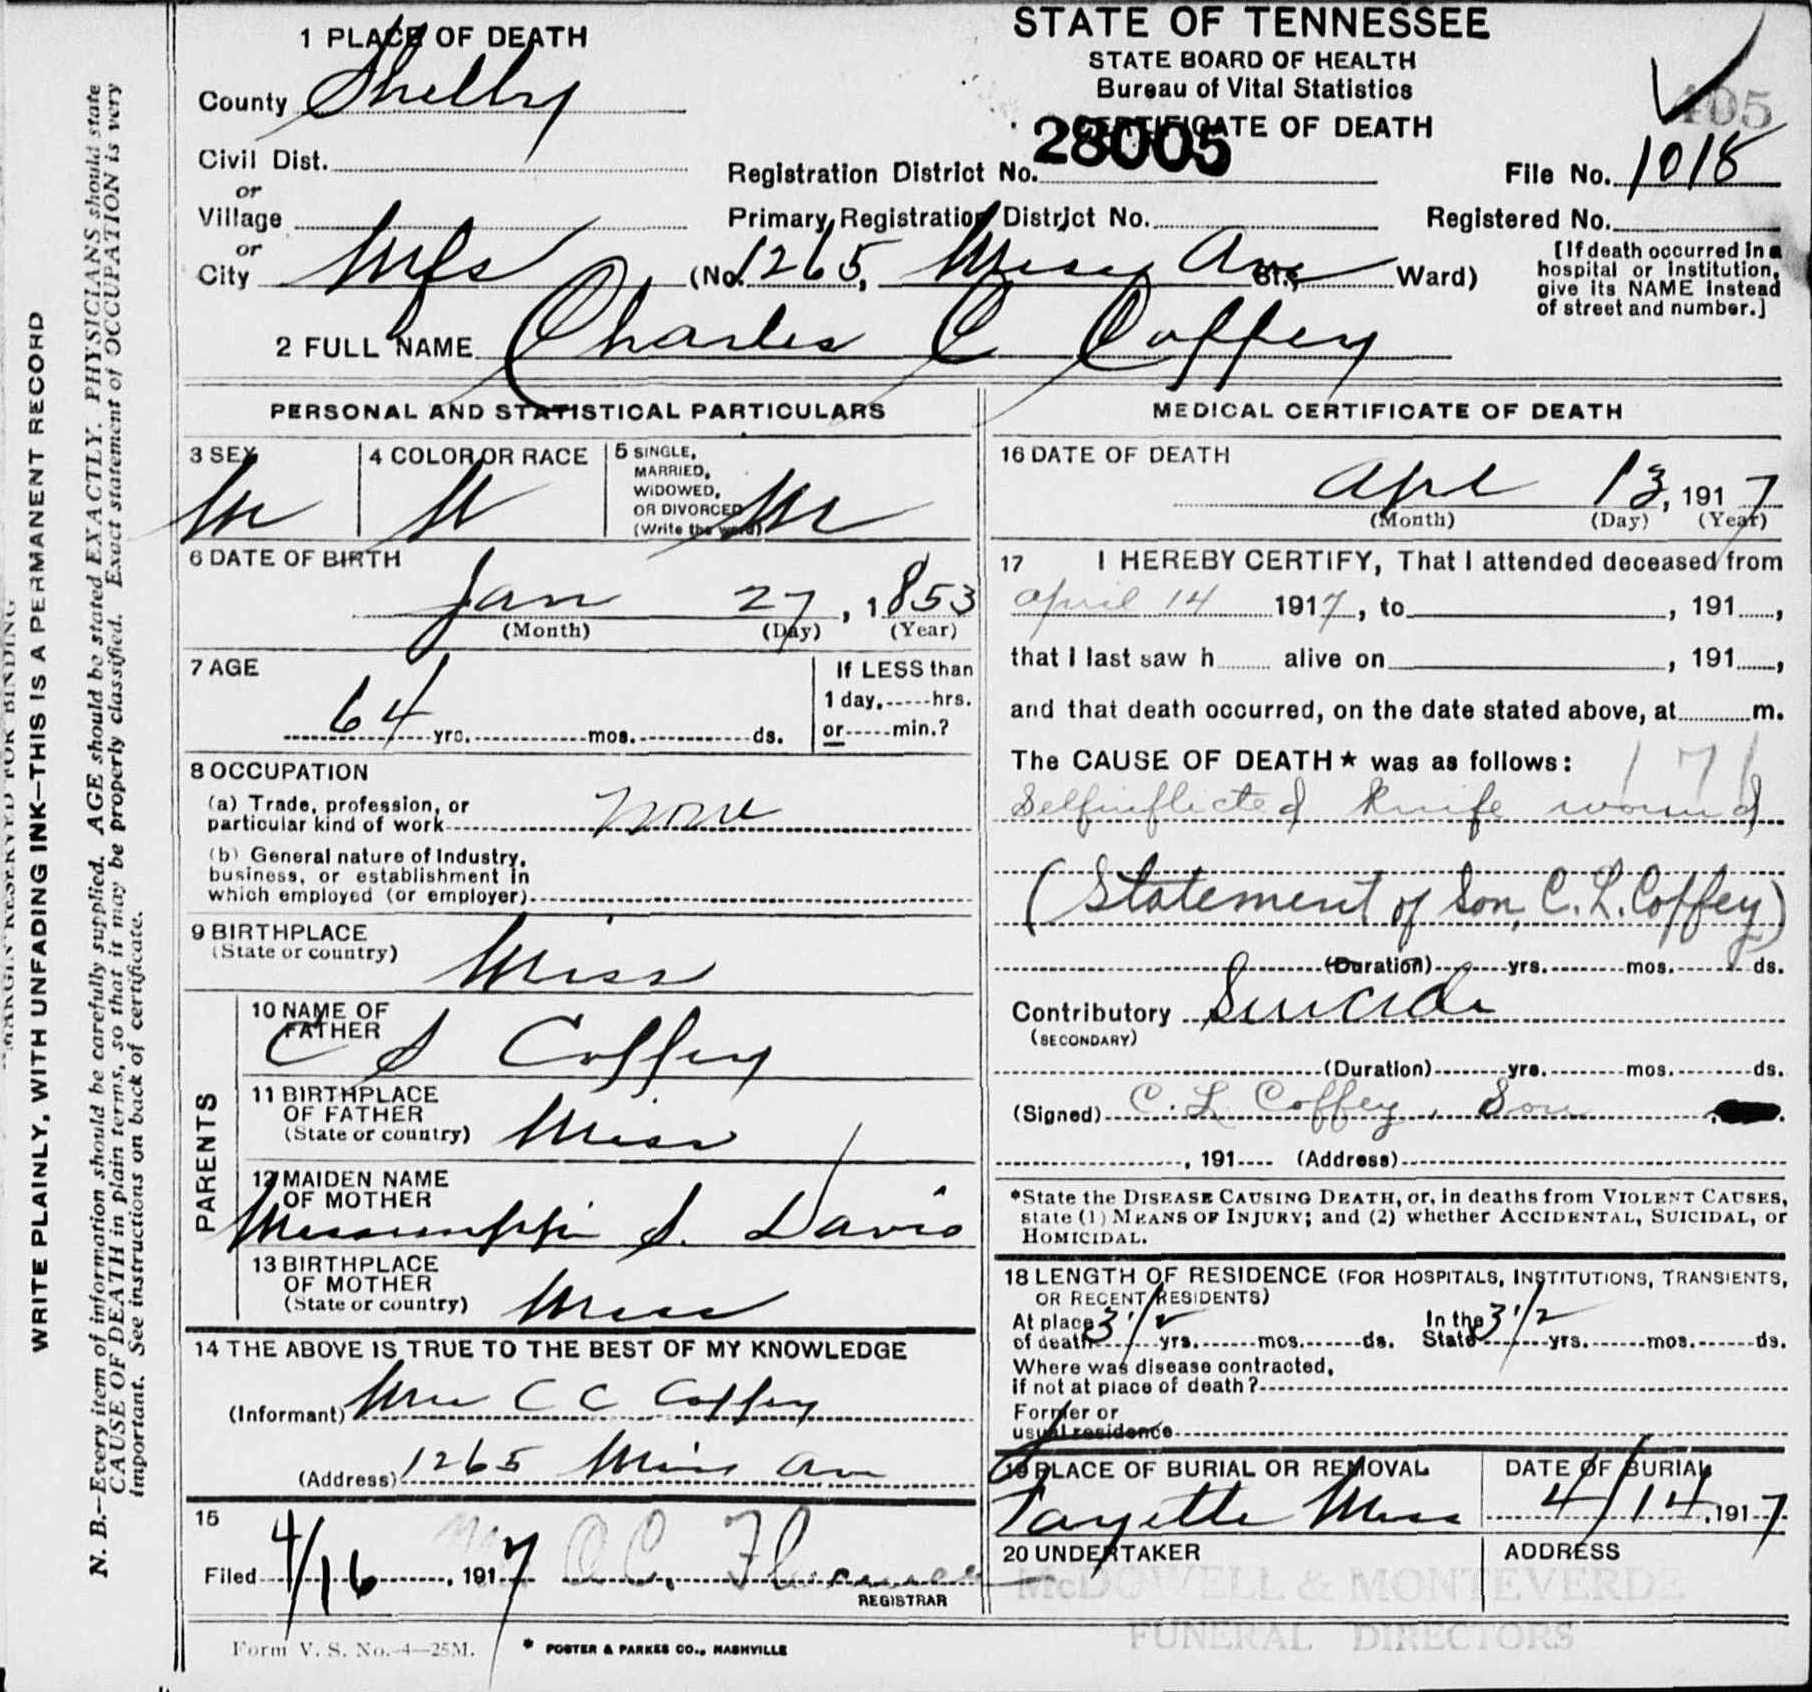 WRITE PLAINLY, WITH UNFADING INK—THIS IS A PERMANENT RECORD
N. B.—Every item of information should be carefully supplied. AGE should be stated EXACTLY. PHYSICIANS should state
CAUSE OF DEATH in plain terms, so that it may be properly classified. Exact statement of OCCUPATION is very
important. See instructions on back of certificate.
MARGIN RESERVED FOR BINDING
1 PLACE OF DEATH
County Shelby
Civil Dist.
or
Village
or
City Mfs (No. 1265, Miss Ave St., Ward)
STATE OF TENNESSEE
STATE BOARD OF HEALTH
Bureau of Vital Statistics
CERTIFICATE OF DEATH
405
28005
Registration District No.
File No. 1018
Primary Registration District No.
Registered No.
[If death occurred in a
hospital or institution,
give its NAME instead
of street and number.]
2 FULL NAME Charles C Coffey
PERSONAL AND STATISTICAL PARTICULARS
3 SEX M
4 COLOR OR RACE W
5 SINGLE,
MARRIED,
WIDOWED,
OR DIVORCED
(Write the word) M
6 DATE OF BIRTH
Jan 27, 1853
(Month) (Day) (Year)
7 AGE
64 yrs. mos. ds.
If LESS than
1 day, hrs.
or min.?
8 OCCUPATION
(a) Trade, profession, or
particular kind of work none
(b) General nature of Industry,
business, or establishment in
which employed (or employer)
9 BIRTHPLACE
(State or country) Miss
PARENTS
10 NAME OF
FATHER
C S Coffey
11 BIRTHPLACE
OF FATHER
(State or country) Miss
12 MAIDEN NAME
OF MOTHER
Mississippi S. Davis
13 BIRTHPLACE
OF MOTHER
(State or country) Miss
14 THE ABOVE IS TRUE TO THE BEST OF MY KNOWLEDGE
(Informant) Mrs C C Coffey
(Address) 1265 Miss Ave
15
Filed 4/16, 1917
REGISTRAR
MEDICAL CERTIFICATE OF DEATH
16 DATE OF DEATH
Apl 13, 1917
(Month) (Day) (Year)
17 I HEREBY CERTIFY, That I attended deceased from
April 14 1917, to , 191 ,
that I last saw h alive on , 191 ,
and that death occurred, on the date stated above, at m.
The CAUSE OF DEATH* was as follows:
171
Selfinflicted knife wound
(Statement of Son, C. L. Coffey)
(Duration) yrs. mos. ds.
Contributory Suicide
(SECONDARY)
(Duration) yrs. mos. ds.
(Signed) C. L Coffey, Son
, 191 (Address)
*State the DISEASE CAUSING DEATH, or, in deaths from VIOLENT CAUSES,
state (1) MEANS OF INJURY; and (2) whether ACCIDENTAL, SUICIDAL, or
HOMICIDAL.
18 LENGTH OF RESIDENCE (FOR HOSPITALS, INSTITUTIONS, TRANSIENTS,
OR RECENT RESIDENTS)
At place
of death 3 1/2 yrs. mos. ds.
In the
State 3 1/2 yrs. mos. ds.
Where was disease contracted,
if not at place of death?
Former or
usual residence
19 PLACE OF BURIAL OR REMOVAL
Fayette Miss
DATE OF BURIAL
4/14, 1917
20 UNDERTAKER
ADDRESS
McDOWELL & MONTEVERDE
FUNERAL DIRECTORS
Form V. S. No. 4—25M.
* FOSTER & PARKES CO., NASHVILLE